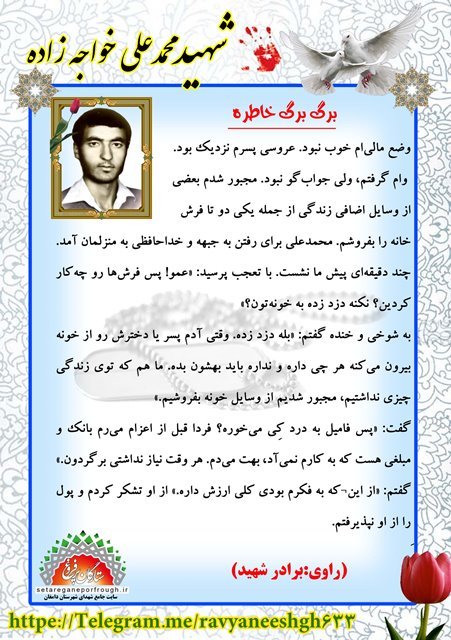 شهید محمدعلی خواجه زاده
برگ برگ خاطره
وضع مالی‌ام خوب نبود. عروسی پسرم نزدیک بود.
وام گرفتم، ولی جواب‌گو نبود. مجبور شدم بعضی
از وسایل اضافی زندگی از جمله یکی دو تا فرش
خانه را بفروشم. محمدعلی برای رفتن به جبهه و خداحافظی به منزلمان آمد.
چند دقیقه‌ای پیش ما نشست. با تعجب پرسید: «عمو! پس فرش‌ها رو چه‌کار
کردین؟ نکنه دزد زده به خونه‌تون؟»
به شوخی و خنده گفتم: «بله دزد زده. وقتی آدم پسر یا دخترش رو از خونه
بیرون می‌کنه هر چی داره و نداره باید بهشون بده. ما هم که توی زندگی
چیزی نداشتیم، مجبور شدیم از وسایل خونه بفروشیم.»
گفت: «پس فامیل به درد کِی می‌خوره؟ فردا قبل از اعزام می‌رم بانک و
مبلغی هست که به کارم نمی‌آد، بهت می‌دم. هر وقت نیاز نداشتی برگردون.»
گفتم: «از این¬که به فکرم بودی کلی ارزش داره.» از او تشکر کردم و پول
را از او نپذیرفتم.
(راوی:برادر شهید)
ستارگان پرفروغ
setareganeporfrough.ir
سایت جامع شهدای شهرستان دامغان
https://Telegram.me/ravyaneeshgh۶۳۳